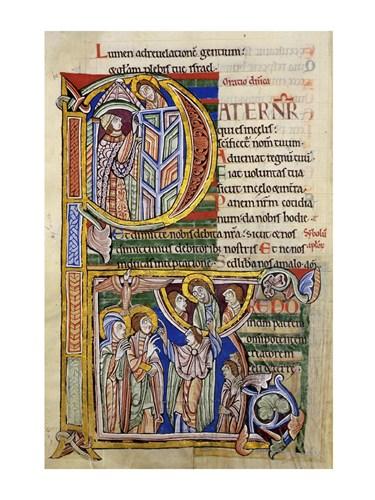 Lumen adreuelationē gentium:
& glām plebis tue israel.
Oratio dn̄ica
PATER NR̄
qui es in celis:
scificet᷑ nom̄ tuum.
Adueniat regnū tuū
Fiat uoluntas tua
sicut in celo & in tr̄a.
Panem nr̄m cotidia
num: da nobis hodie.
Et dimitte nobis debita nr̄a: sicut & nos
dimittimus debitoribꝫ nostris. Et ne nos
inducas in temptatione. Sed libera nos a malo. am̄
REDO
in dm̄ patrem
omnipotentem
creatorem
celi & terre